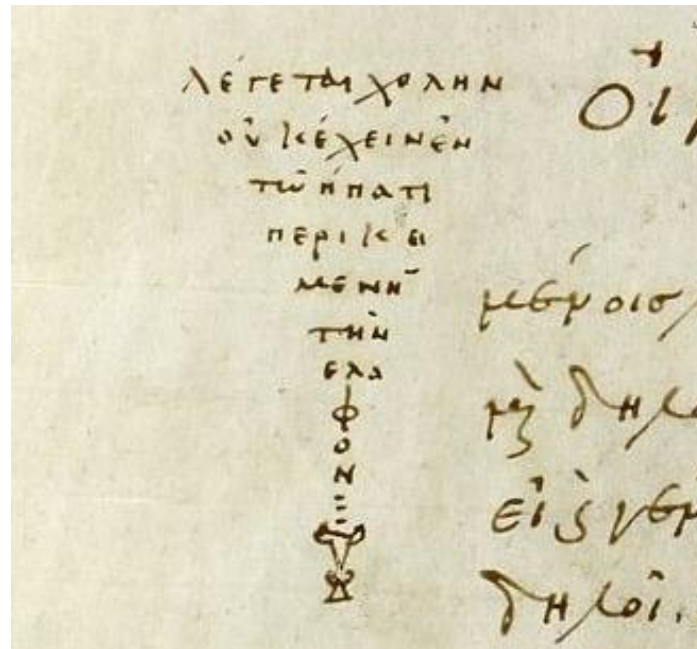 λέγεται χολὴν
οὐκ ἔχειν ἐν
τῶ ἥπατι
περικει
μενη
τὴν
ελα
φ
ο
ν
Οἱ
μένοις
δηλο
εἰς γεμ
δηλοῖ.